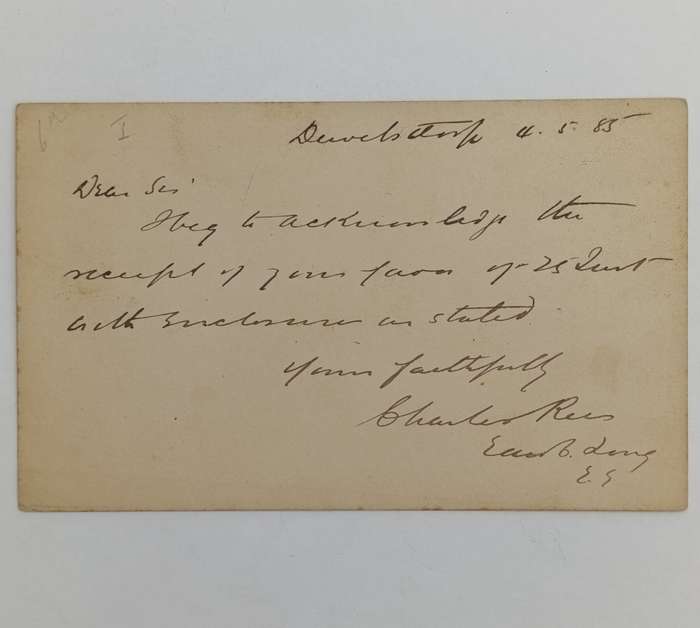 Dewetsdorp 4.5.85
Dear Sir
I beg to acknowledge the
receipt of your favor of 25 Inst
with Enclosure as stated.
Yours faithfully
Charles Rees